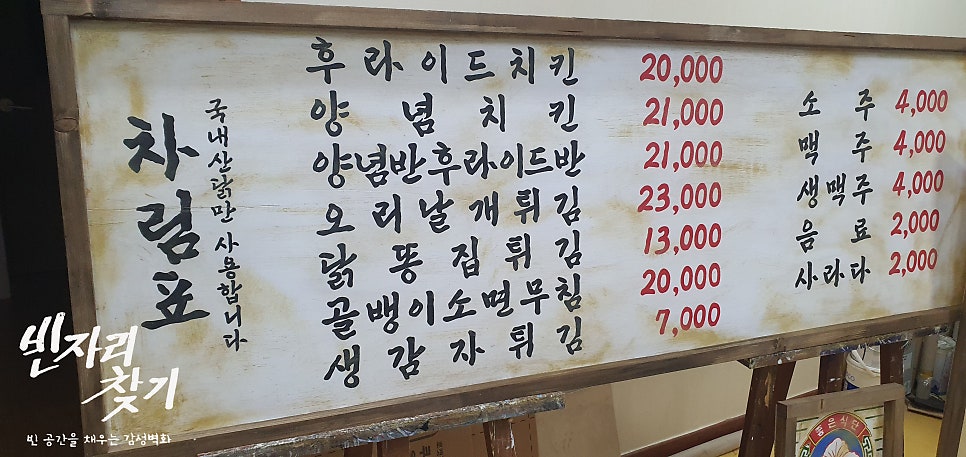 차림표
국내산 닭만 사용합니다
후라이드치킨 20,000
양념치킨 21,000
양념반후라이드반 21,000
오리날개튀김 23,000
닭똥집튀김 13,000
골뱅이소면무침 20,000
생감자튀김 7,000
소주 4,000
맥주 4,000
생맥주 4,000
음료 2,000
사라다 2,000
빈자리
찾기
빈 공간을 채우는 감성벽화
좋은식단